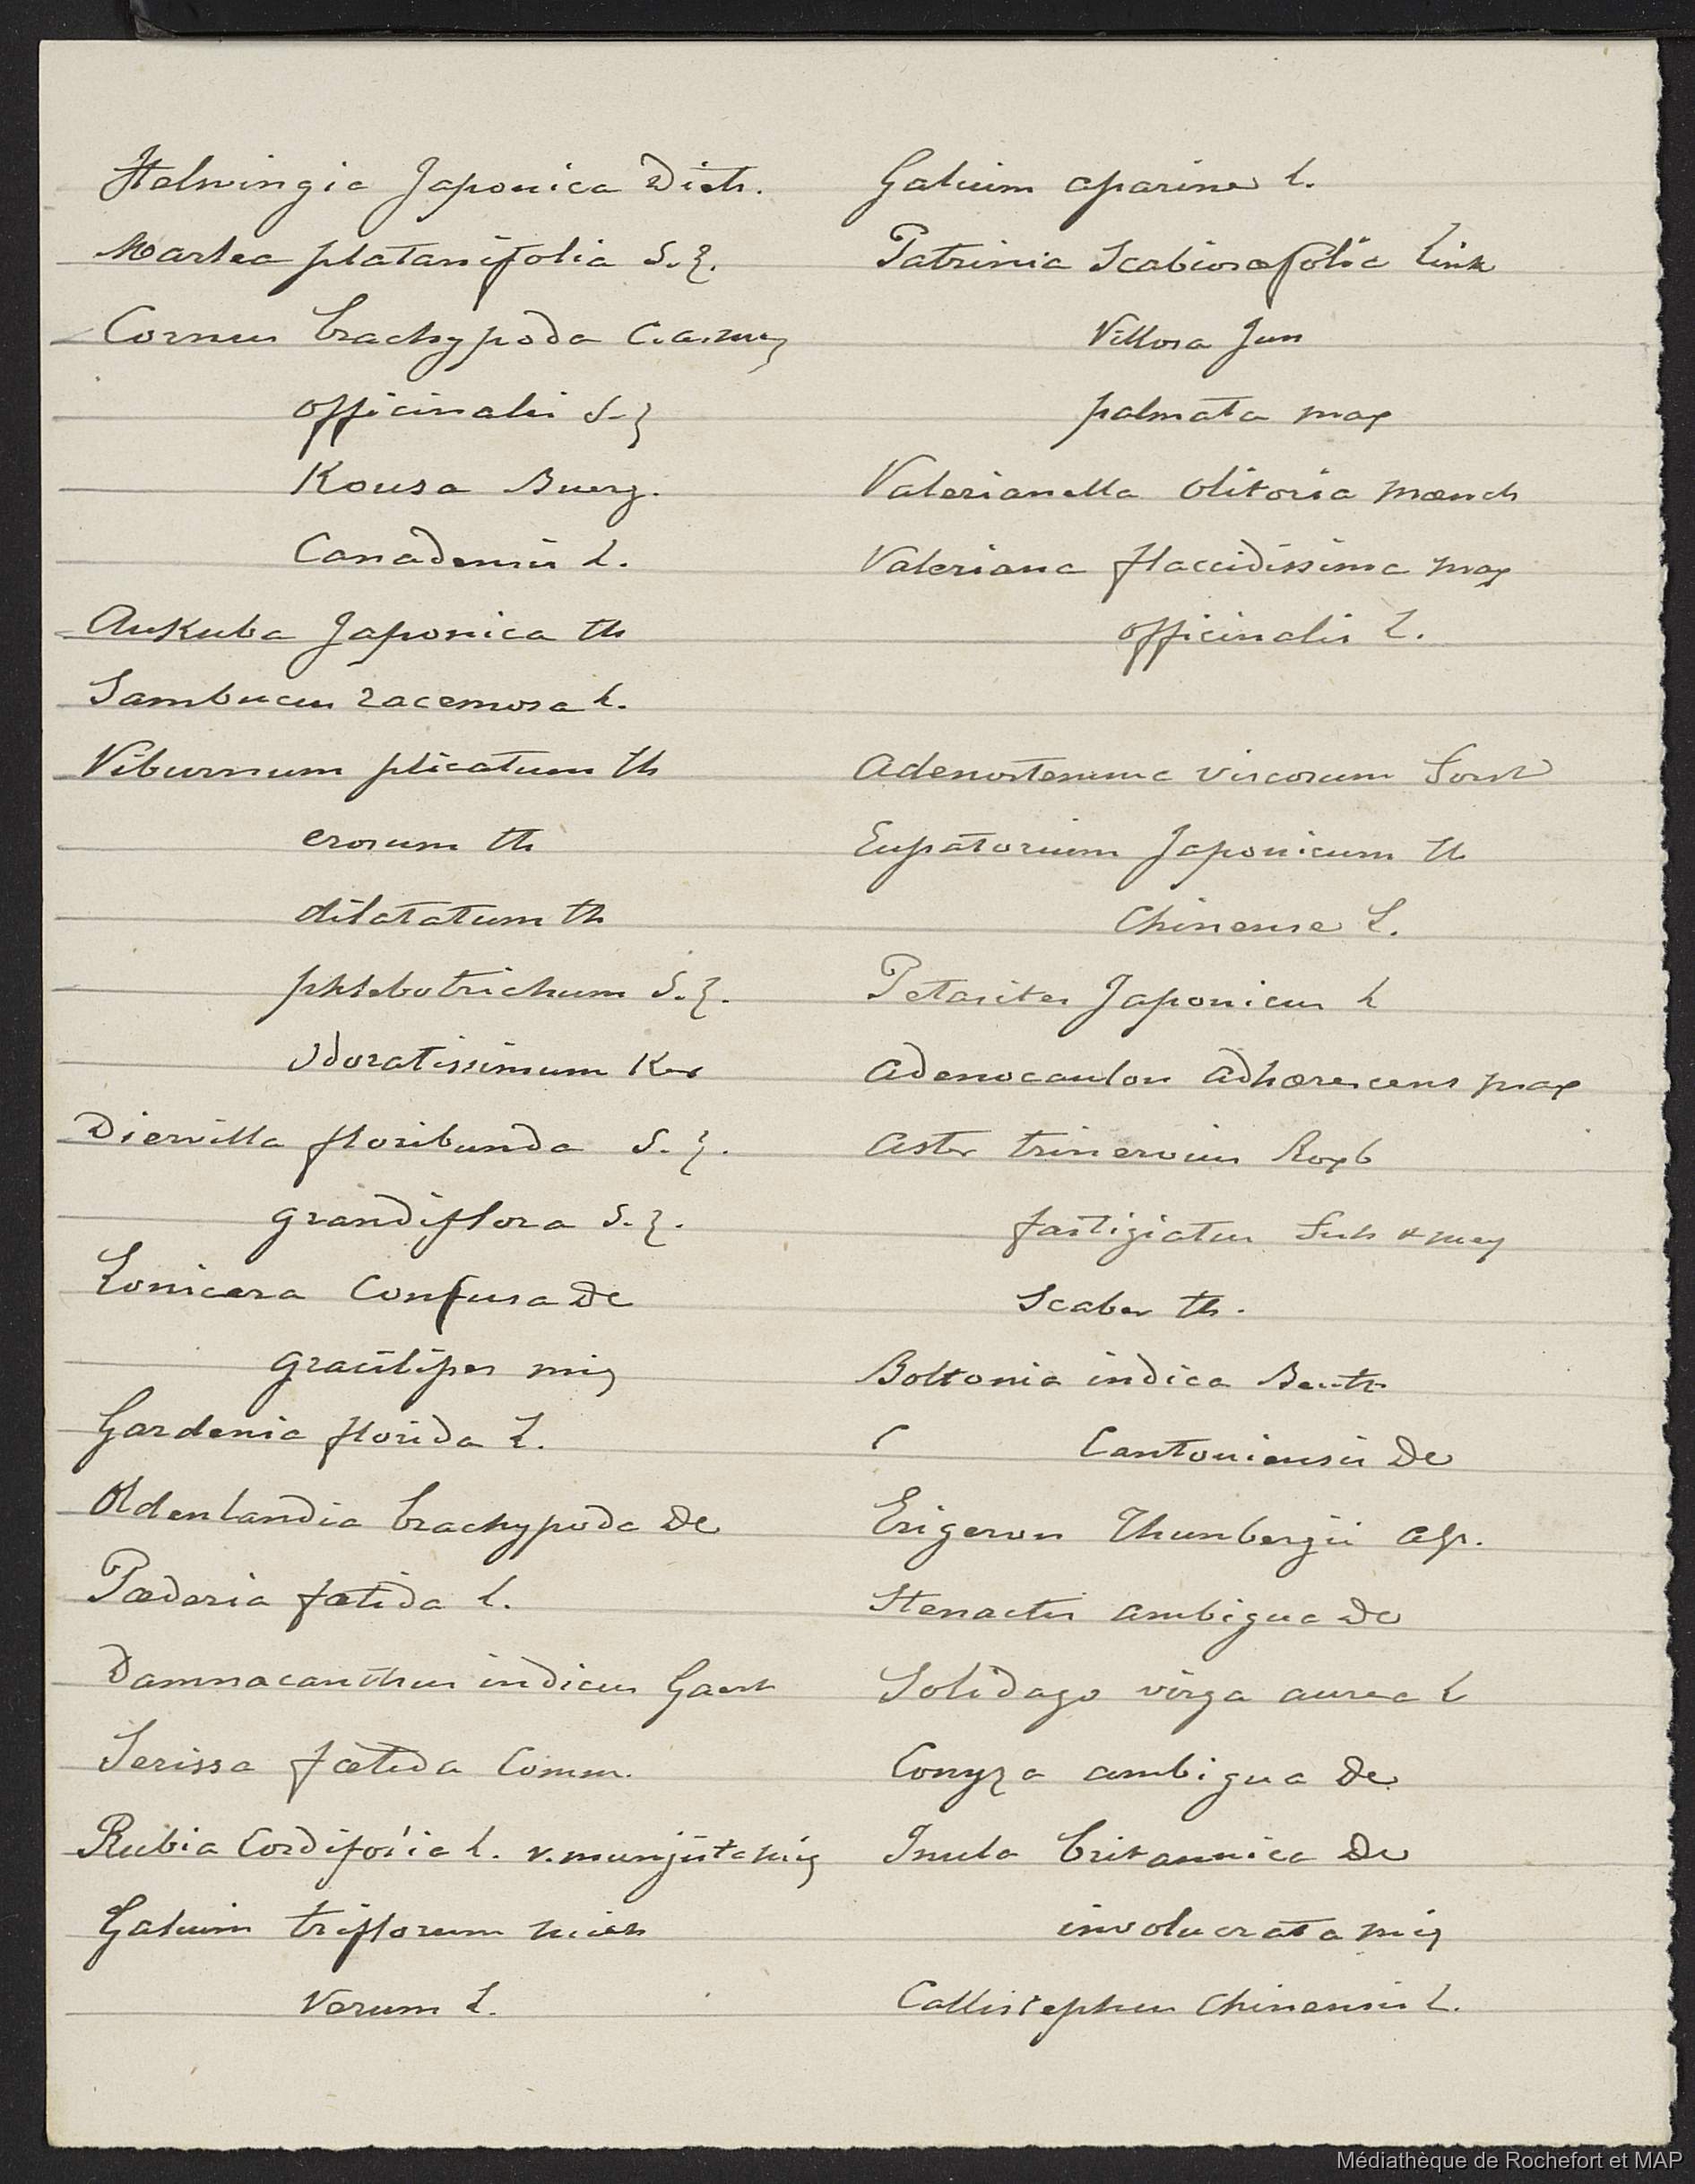 Helwingia Japonica Dich.
Marlea platanifolia S.Z.
Cornus brachypoda C.a.mey
officinalis S.Z
Kousa Buerg.
Canadensis L.
Aukuba Japonica th
Sambucus racemosa L.
Viburnum plicatum th
erosum th
dilatatum th
phlebotrichum S.Z.
Odoratissimum Ker
Diervilla floribunda S.Z.
grandiflora S.Z.
Lonicera Confusa De
gracilipes miq
Gardenia florida L.
Oldenlandia brachypoda De
Pæderia fœtida L.
Damnacanthus indicus Gaert
Serissa fœtida Comm.
Rubia Cordifolia L. v. munjista miq
Galium triflorum mich
Verum L.
Galium aparine L.
Patrinia Scabiosæfolia Link
Villosa Jun
palmata max
Valerianella Olitoria mœnch
Valeriana flaccidissima max
officinalis L.
Adenostemma viscosum Forst
Eupatorium Japonicum th
Chinense L.
Petasites Japonicus L
Adenocaulon adhærescens max
Aster trinervius Roxb
fastigiatus Fisch & mey
Scaber th.
Boltonia indica Benth
Cantoniensis De
Erigeron Thunbergii
Stenactis ambigua De
Solidago virga aurea L
Conyza ambigua De
Inula britannica De
involucrata miq
Callistephus Chinensis L.
Médiathèque de Rochefort et MAP